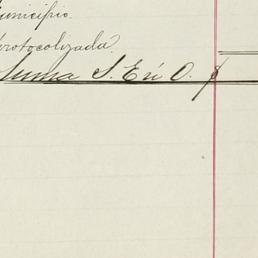 Municipio.
Protocolizada.
Suma S. E. ú O. $